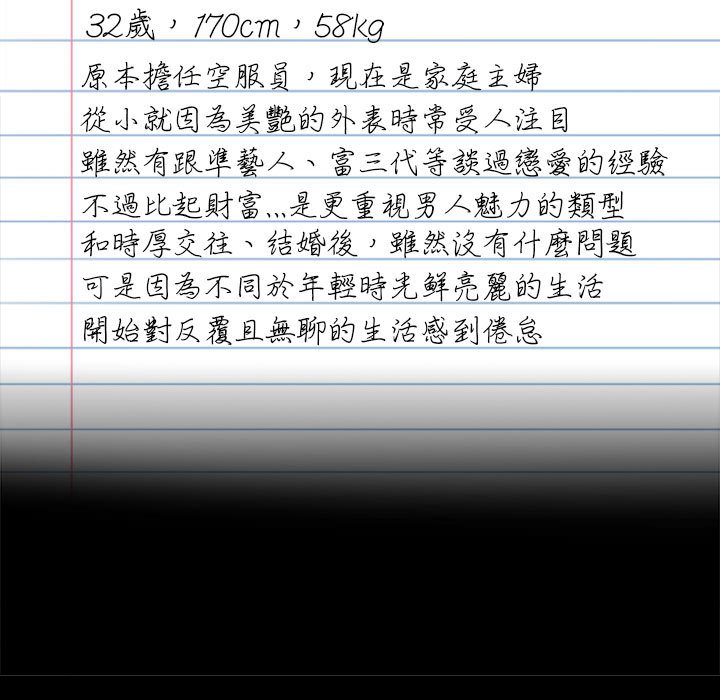 32歲，170cm，58kg
原本擔任空服員，現在是家庭主婦
從小就因為美艷的外表時常受人注目
雖然有跟準藝人、富三代等談過戀愛的經驗
不過比起財富,,,是更重視男人魅力的類型
和時厚交往、結婚後，雖然沒有什麼問題
可是因為不同於年輕時光鮮亮麗的生活
開始對反覆且無聊的生活感到倦怠